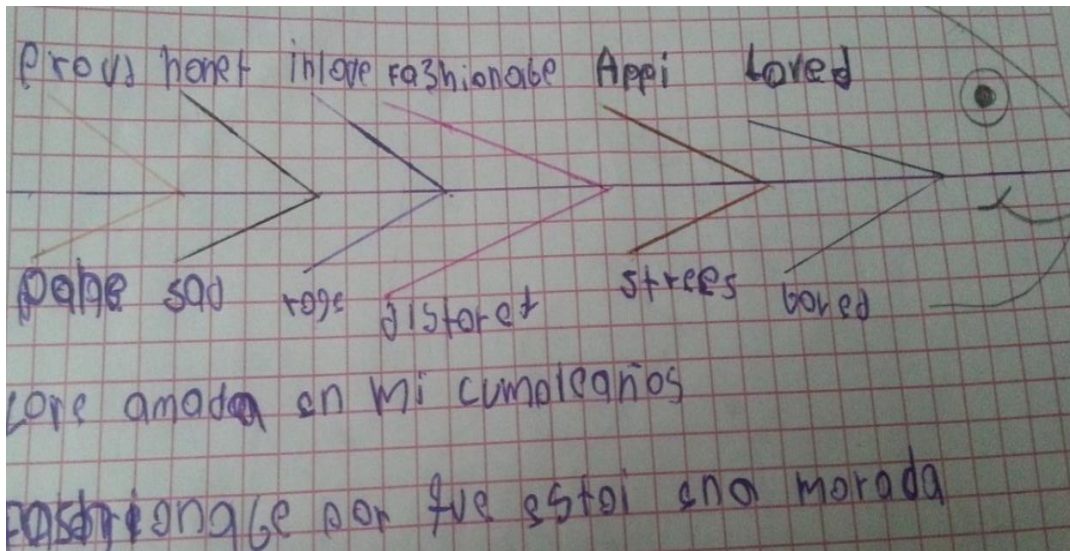 Proud honet inlove fashionabe Appi Loved
pane sad rage distoret strees bored
Lore amada en mi cumpleaños
Fashrionabe por que estoi ena morada